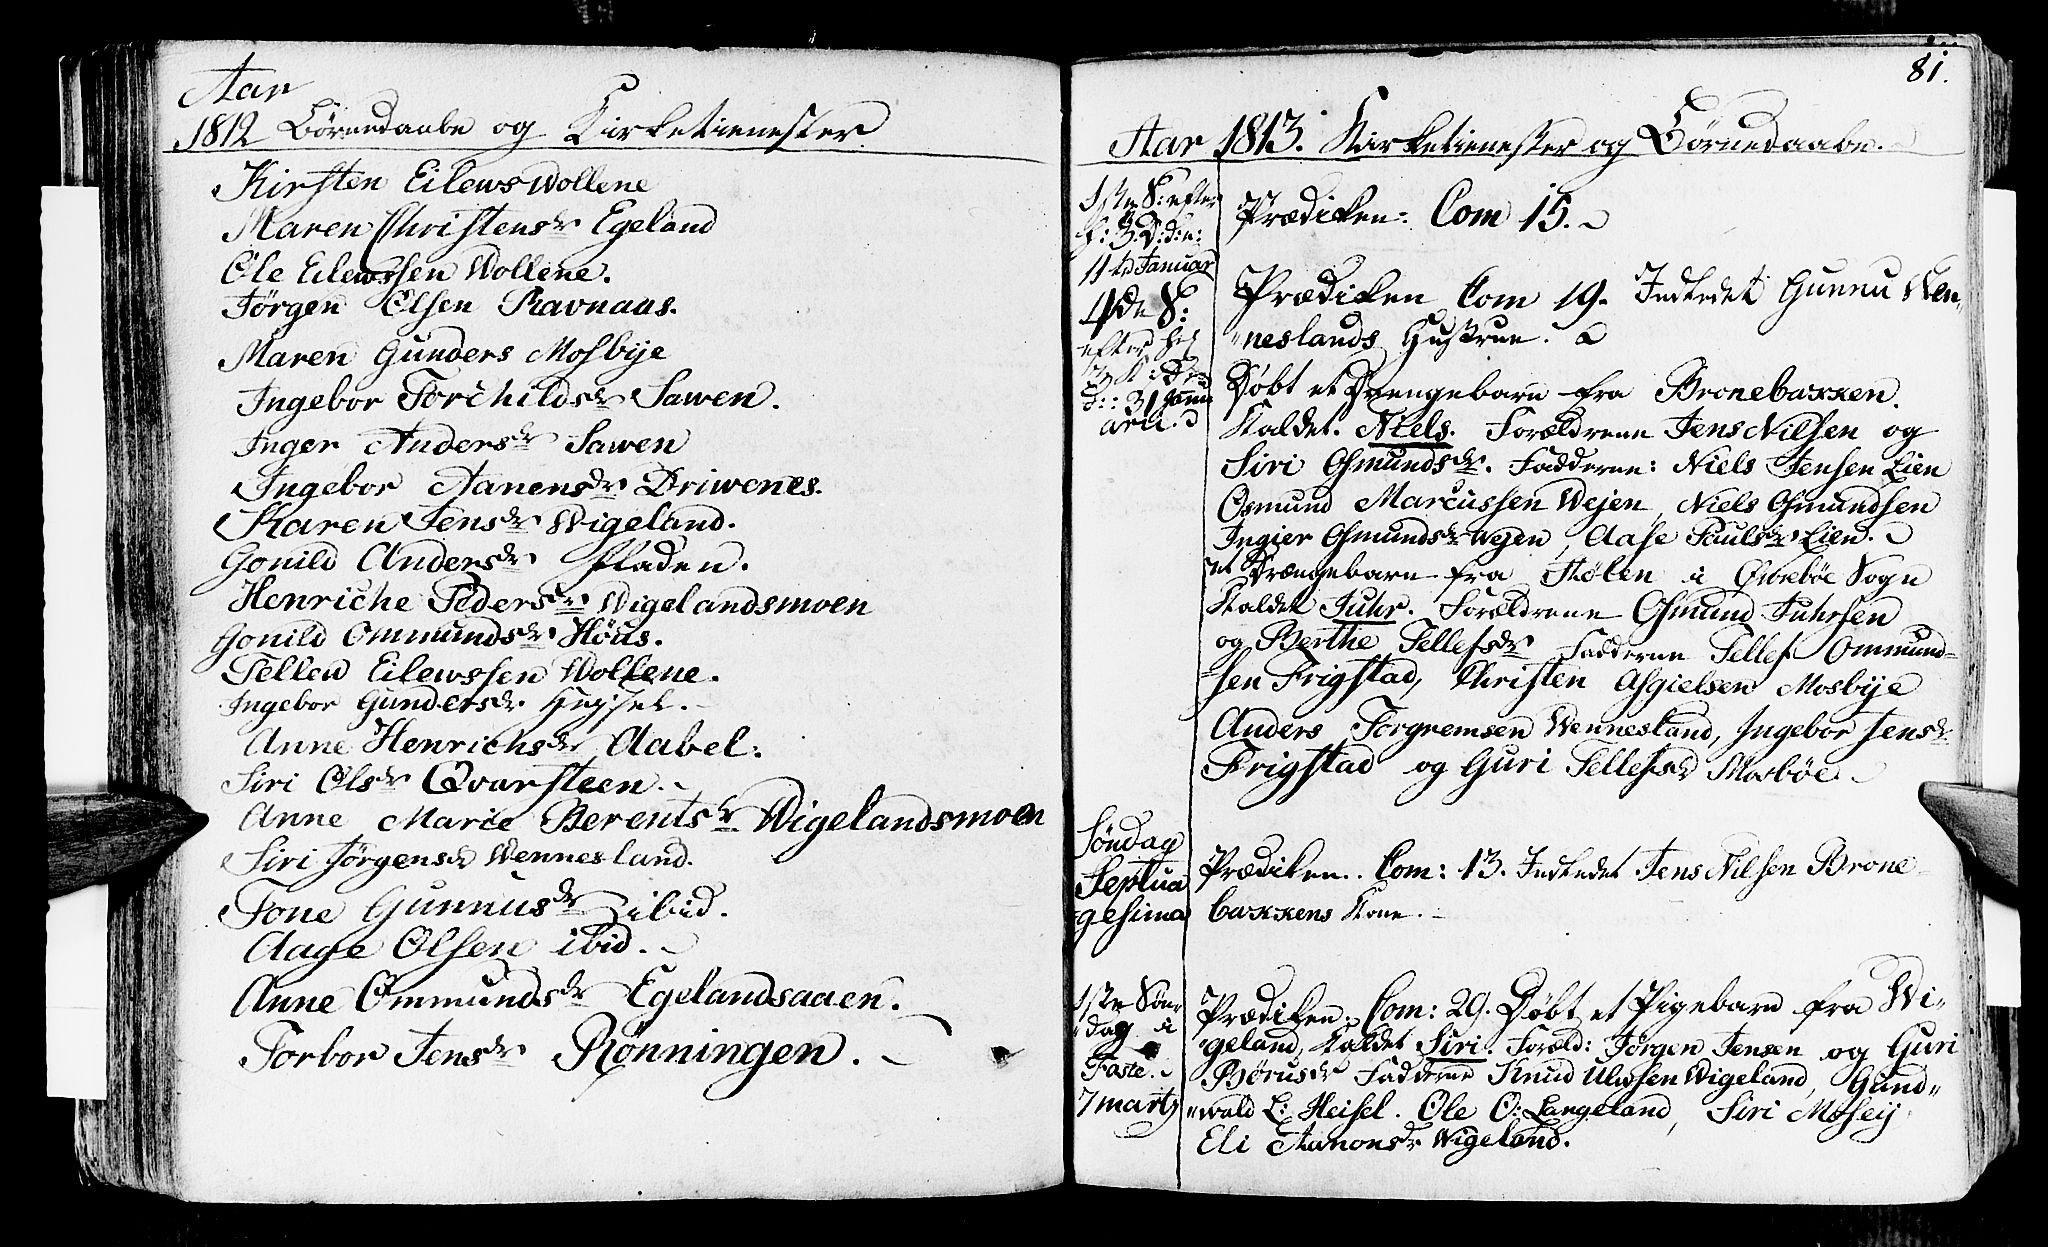 Aar
1812 Börnedaabe og Kirketienester
Kirsten Eilews Wollene
Maren Christensdr Egeland
Ole Eilewssen Wollene.
Jørgen Olsen Ravnaas.
Maren Gunders Mosbÿe
Ingebor Torchildsdr Sawen.
Inger Andersdr Sawen
Ingebor Aanensdr Driwenes.
Karen Jensdr Wigeland.
Gonild Andersdr Fladen.
Henriche Pedersdr Wigelandsmoen
Gonild Ommundsdr Höüs.
Tellew Eilewssen Wollene.
Ingebor Gundersdr
Anne Henrichsdr Aabel.
Siri Olsdr Qvarsteen.
Anne Marie Berentsdr Wigelandsmoen
Siri Jörgensdr Wennesland.
Tone Gunnusdr ibid.
Aage Olsen ibid.
Anne Ommundsdr Egelandsaaen.
Torbor Jensdr Rönningen.
81.
Aar 1813. Kirketienester og Börnedaabe.
1ste S: efter
H: 3. K: D: d:
11te Januar
Prædiken: Com 15.
4de S:
efter Hel
3 K: D:
d: 31 Janu
arii.
Prædiken Com 19. Indledet Gunnu Wen„
„neslands Hustrue.
Döbt et Drengebarn fra Bronebaxxen.
Kaldet. Niels. Forældrene Jens Nilsen og
Siri Osmundsdr. Fadderne: Niels Jensen Lien
Osmund Marcussen Wejen, Niels Osmundsen
Ingier Osmundsdr Wejen, Aase Paulsdr Lien.
et Drængebarn fra Stölen i Øwrebøe Sogn
Kaldet Juhr. Forældrene Osmund Juhrsen
og Berthe Tellefsdr Fadderne Tellef Ommund-
sen Frigstad, Christen Asgielsen Mosbÿe
Anders Torgremsen Wennesland, Ingebor Jensdr
Frigstad og Guri Tellefsdr Mosböe
Søndag
Septua
gesima
Prædiken. Com: 13. Indledet Jens Nilsen Brone
baxxens Kone.
1ste Søn„
„dag i
Faste.
7 martz
Prædiken. Com: 29. Döbt et Pigebarn fra Wi„
„geland, Kaldet Siri. Foræld: Jørgen Jensen og Guri
Børusdr Fadderne Knud Ulwsen Wigeland, Gund„
„wald L: Heisel. Ole O: Langeland, Siri Moseij
Eli Aanonsdr Wigeland.